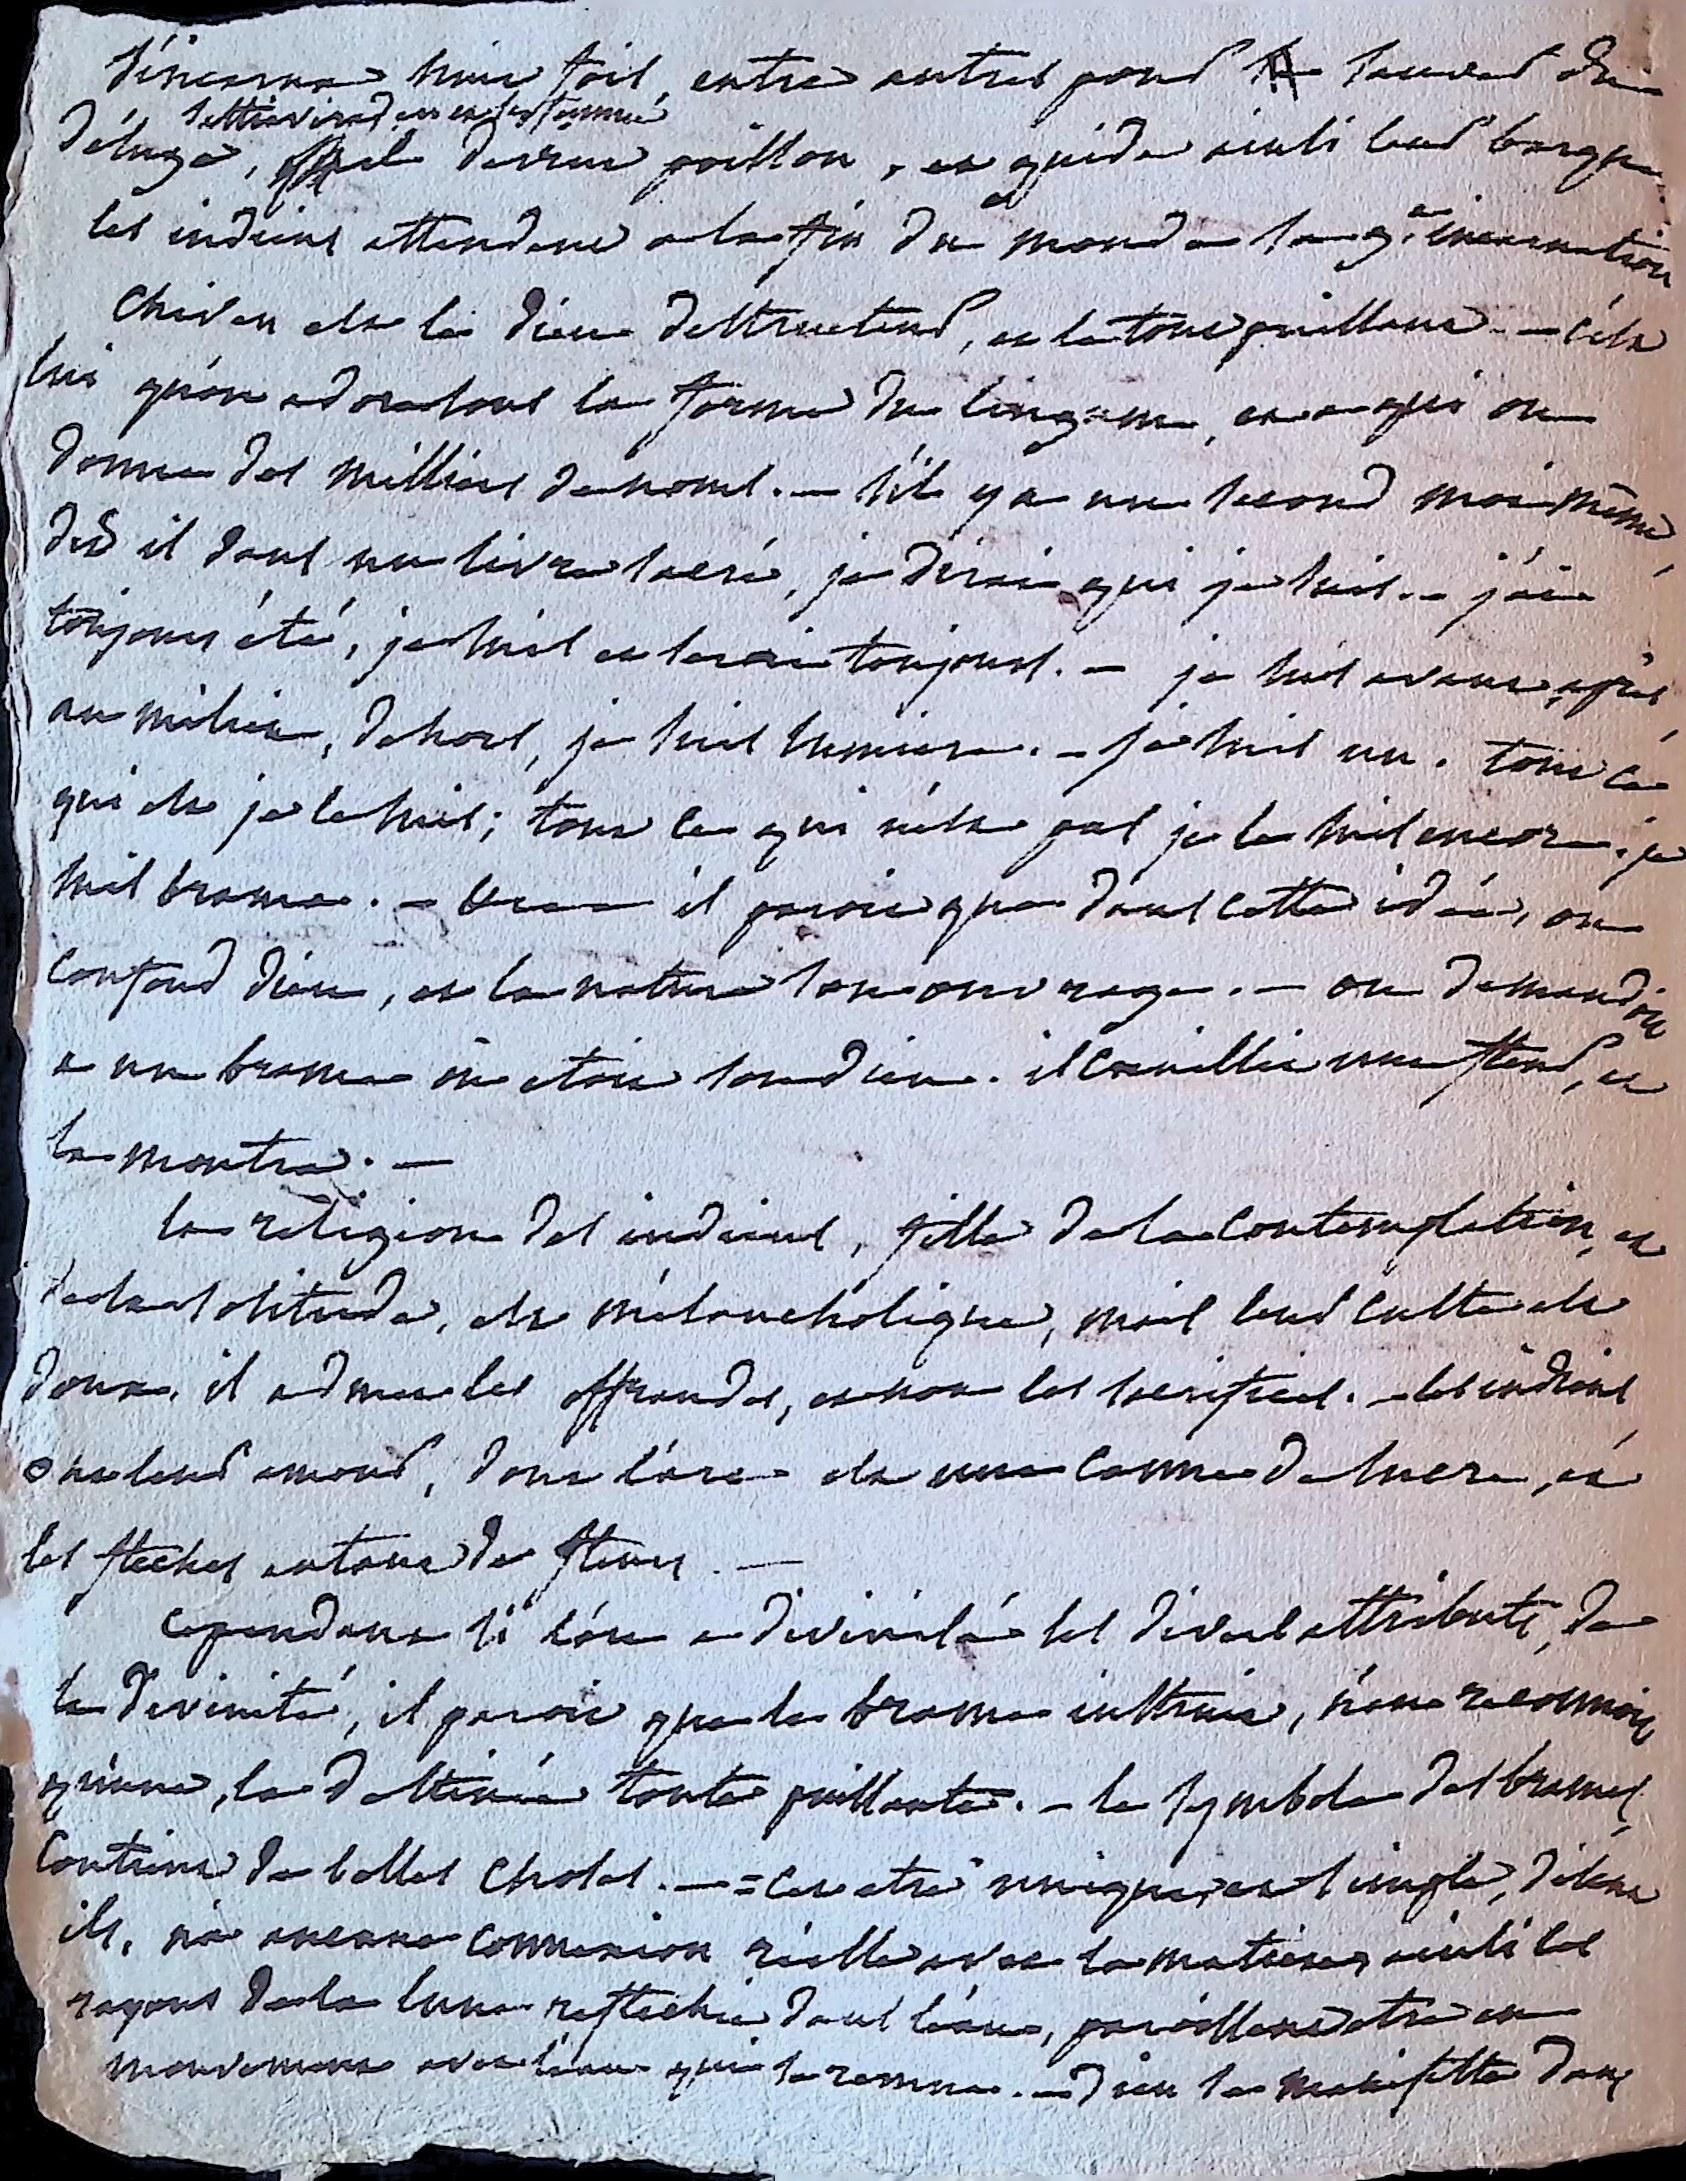 s'incarna huit fois, entre autres pour se sauver du
Sattiavirad, et sa femme
déluge, il devint poisson, et guida ainsi leur barque
les indiens attendent a la fin du monde sa 9e incarnation
Chiven est le dieu destructeur, et le tout puissant. — c'est
lui qu'on adore sous la forme du lingam, et a qui on
donne des milliers de noms. — s'il y a un second moi même,
dit il dans un livre sacré, je dirai qui je suis. — j'ai
toujours été, je suis et serai toujours. — je suis avant, après,
au milieu, dehors, je suis lumiere. — je suis un. tout ce
qui est je le suis; tout ce qui n'est pas je le suis encore. je
suis brama. — il paroit que dans cette idée, on
confond dieu, et la nature son ouvrage. — on demandoit
a un brame où etoit son dieu. il cueillit une fleur, et
la montra. —
la religion des indiens, fille de la contemplation, et
de la solitude, est mélancholique, mais leur culte est
doux. il admet les offrandes, et non les sacrifices. — les indiens
ont leur amour, dont l'arc est une canne de sucre, et
les fleches autant de fleurs. —
cependant si l'on a divinisé les divers attributs, de
la divinité, il paroit que le brame instruit, n'en reconnoit
qu'une, la destinée toute puissante. — le symbole des brames
contient de belles choses. — = cet etre unique, et simple, disent
ils, n'a aucune connexion réelle avec la matiere, ainsi les
rayons de la lune reflechie dans l'eau, paroissent etre en
mouvement avec l'eau qui se remue. — dieu se manifeste dans